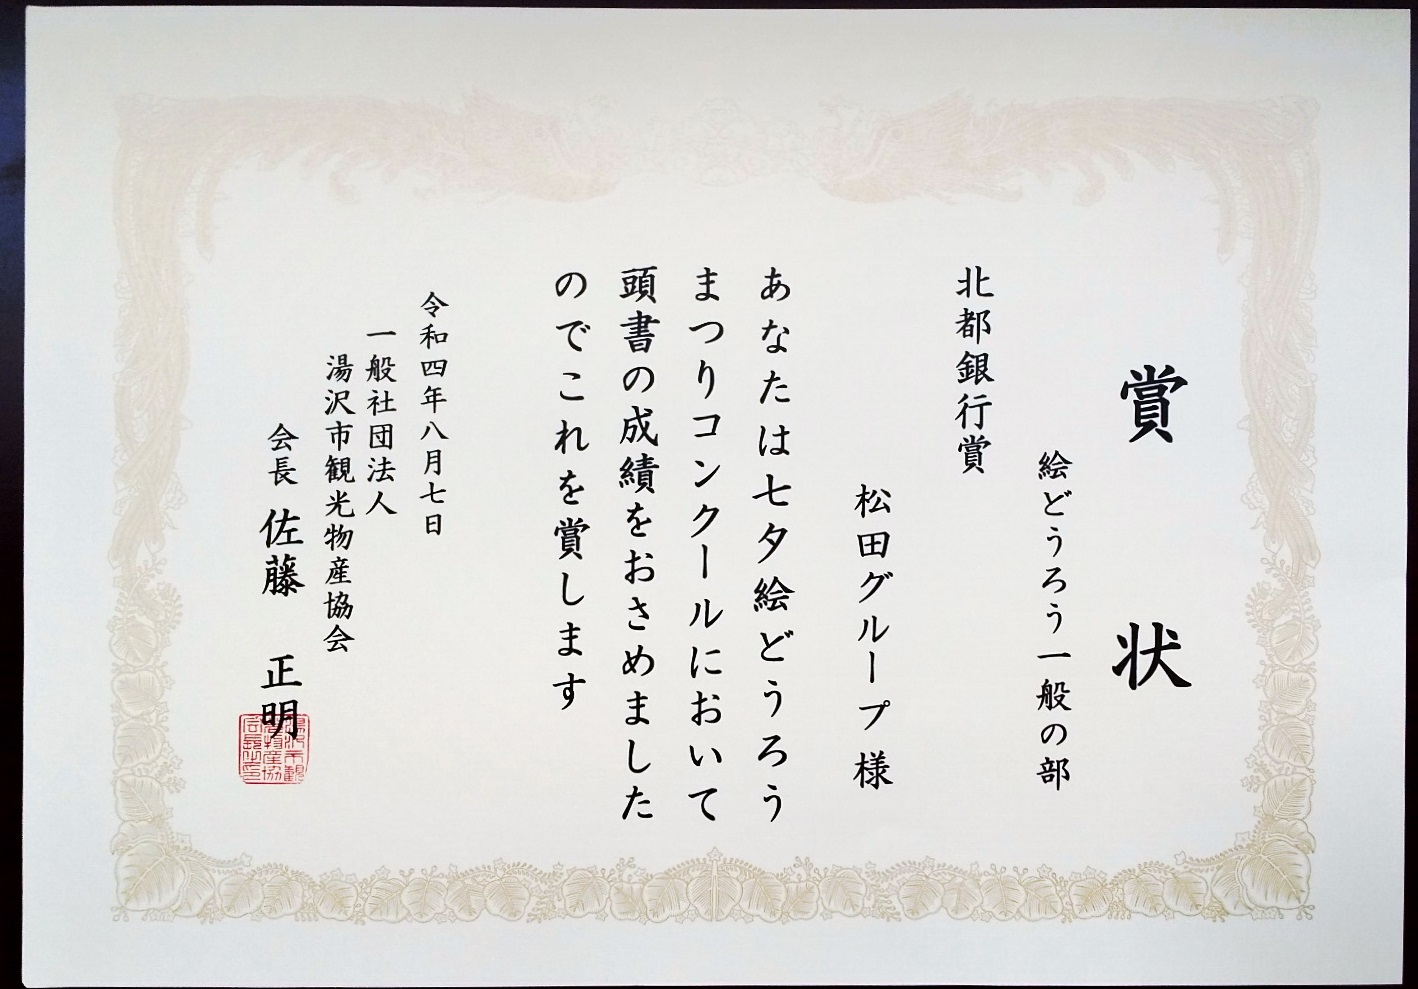 賞状
絵どうろう一般の部
北都銀行賞
松田グループ 様
あなたは七夕絵どうろう
まつりコンクールにおいて
頭書の成績をおさめました
のでこれを賞します
令和四年八月七日
一般社団法人
湯沢市観光物産協会
会長 佐藤 正明